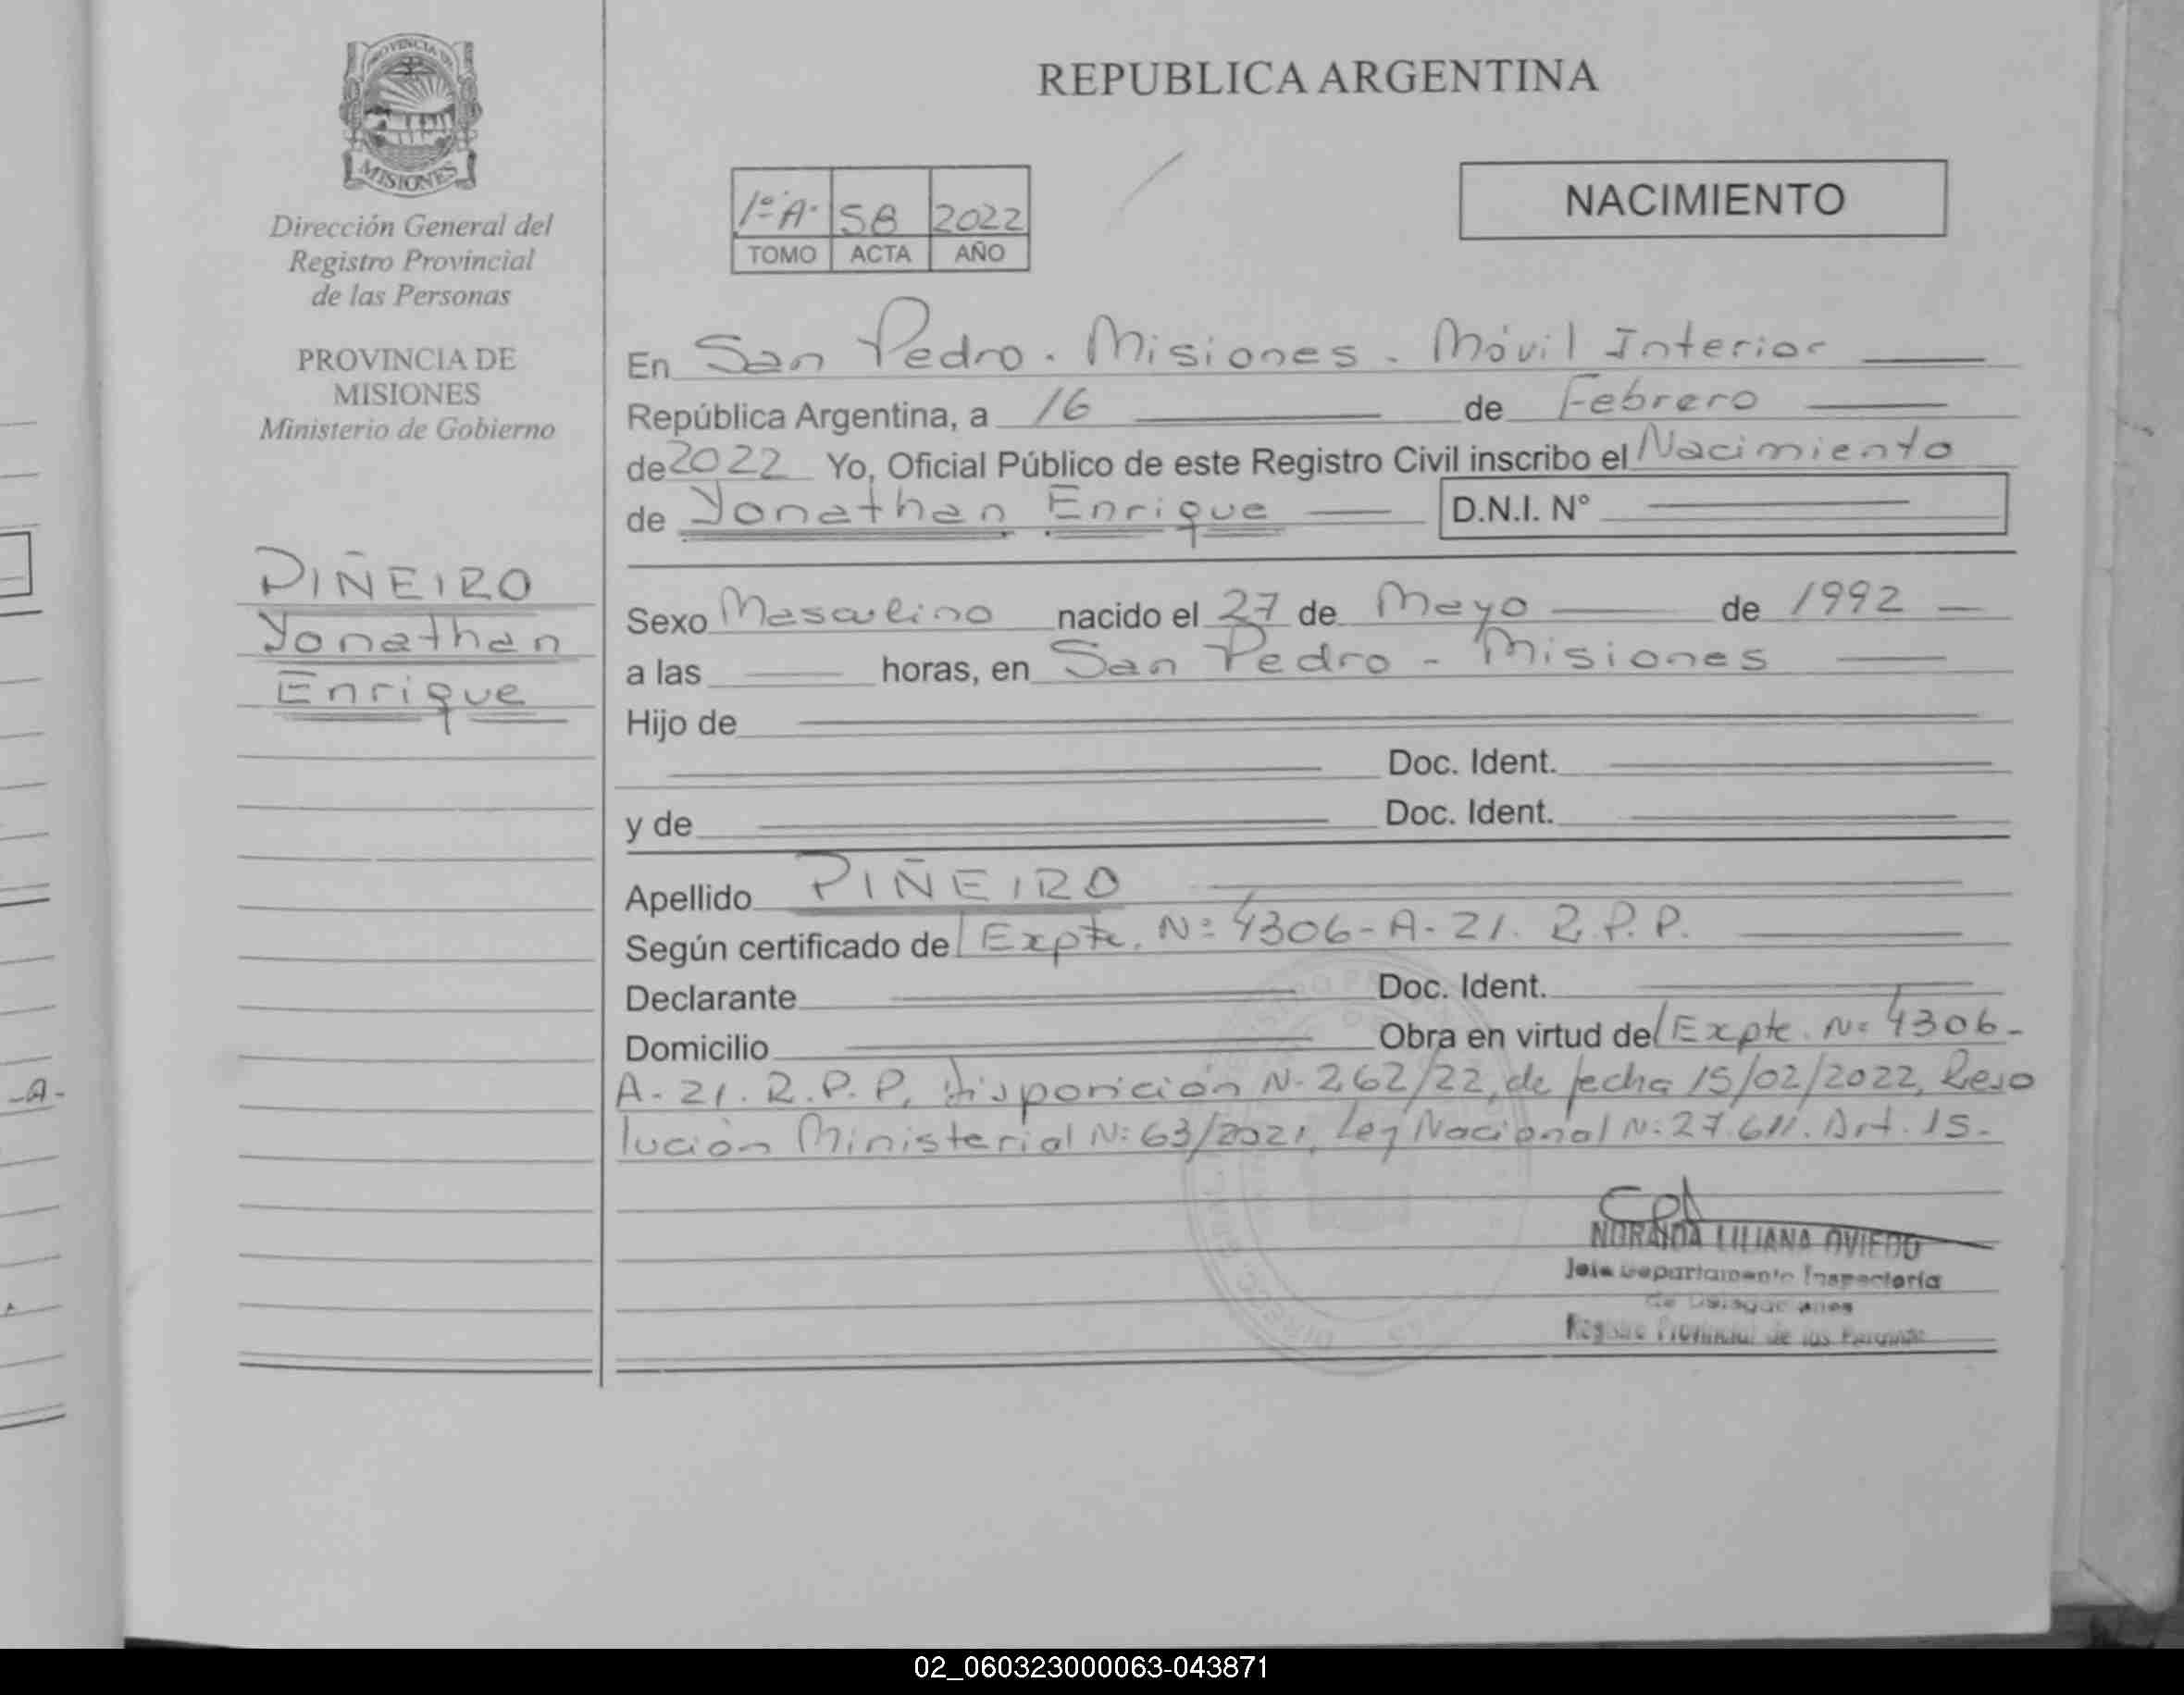 PROVINCIA DE
MISIONES
Dirección General del
Registro Provincial
de las Personas
PROVINCIA DE
MISIONES
Ministerio de Gobierno
PIÑEIRO
Yonathan
Enrique
-A-
REPUBLICA ARGENTINA
1º A- 58 2022
TOMO ACTA AÑO
NACIMIENTO
En San Pedro - Misiones - Móvil Interior
República Argentina, a 16 de Febrero
de 2022 Yo, Oficial Público de este Registro Civil inscribo el Nacimiento
de Yonathan Enrique D.N.I. Nº
Sexo Masculino nacido el 27 de Mayo de 1992
a las horas, en San Pedro - Misiones
Hijo de
Doc. Ident.
y de Doc. Ident.
Apellido PIÑEIRO
Según certificado del Expte. Nº 4306-A-21. R.P.P.
Declarante Doc. Ident.
Domicilio Obra en virtud del Expte. Nº 4306-
A-21. R.P.P. Disposición Nº 262/22, de fecha 15/02/2022, Reso
lución Ministerial Nº 63/2021, Ley Nacional Nº 27.611. Art. 15.
NORAIDA LILIANA OVIEDO
Jefe Departamento Inspectoría
de Delegaciones
Registro Provincial de las Personas
02_060323000063-043871